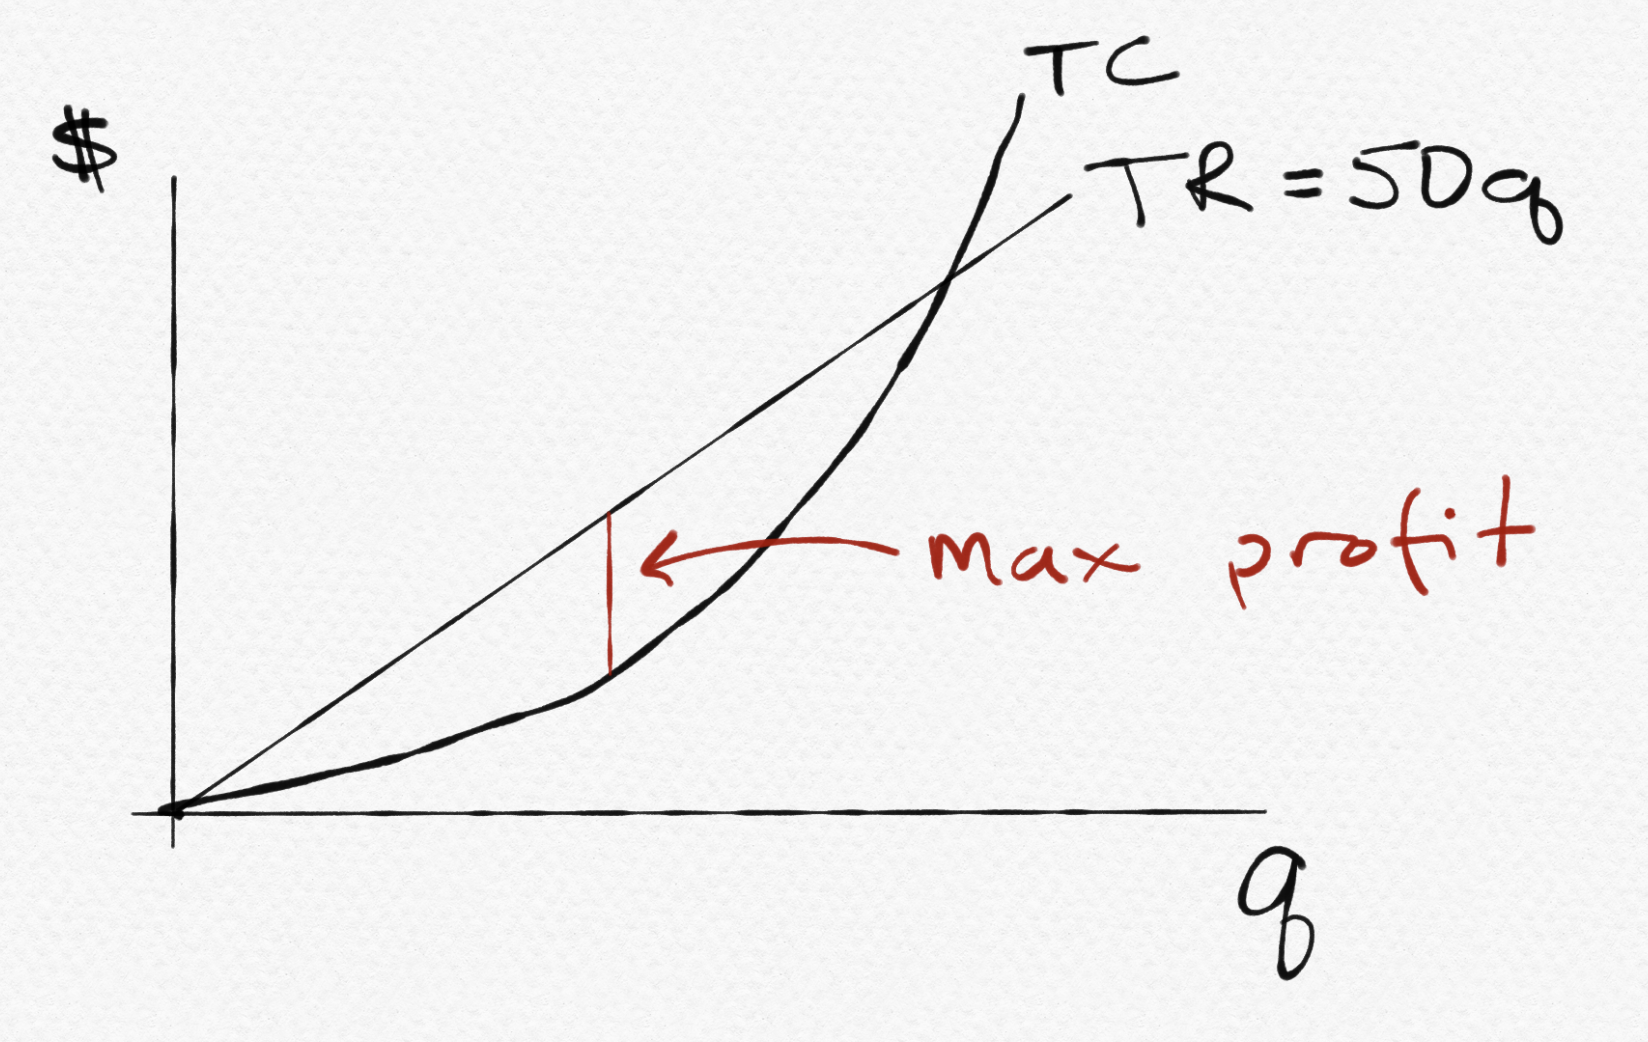 TC
$
TR = 50q
max profit
q